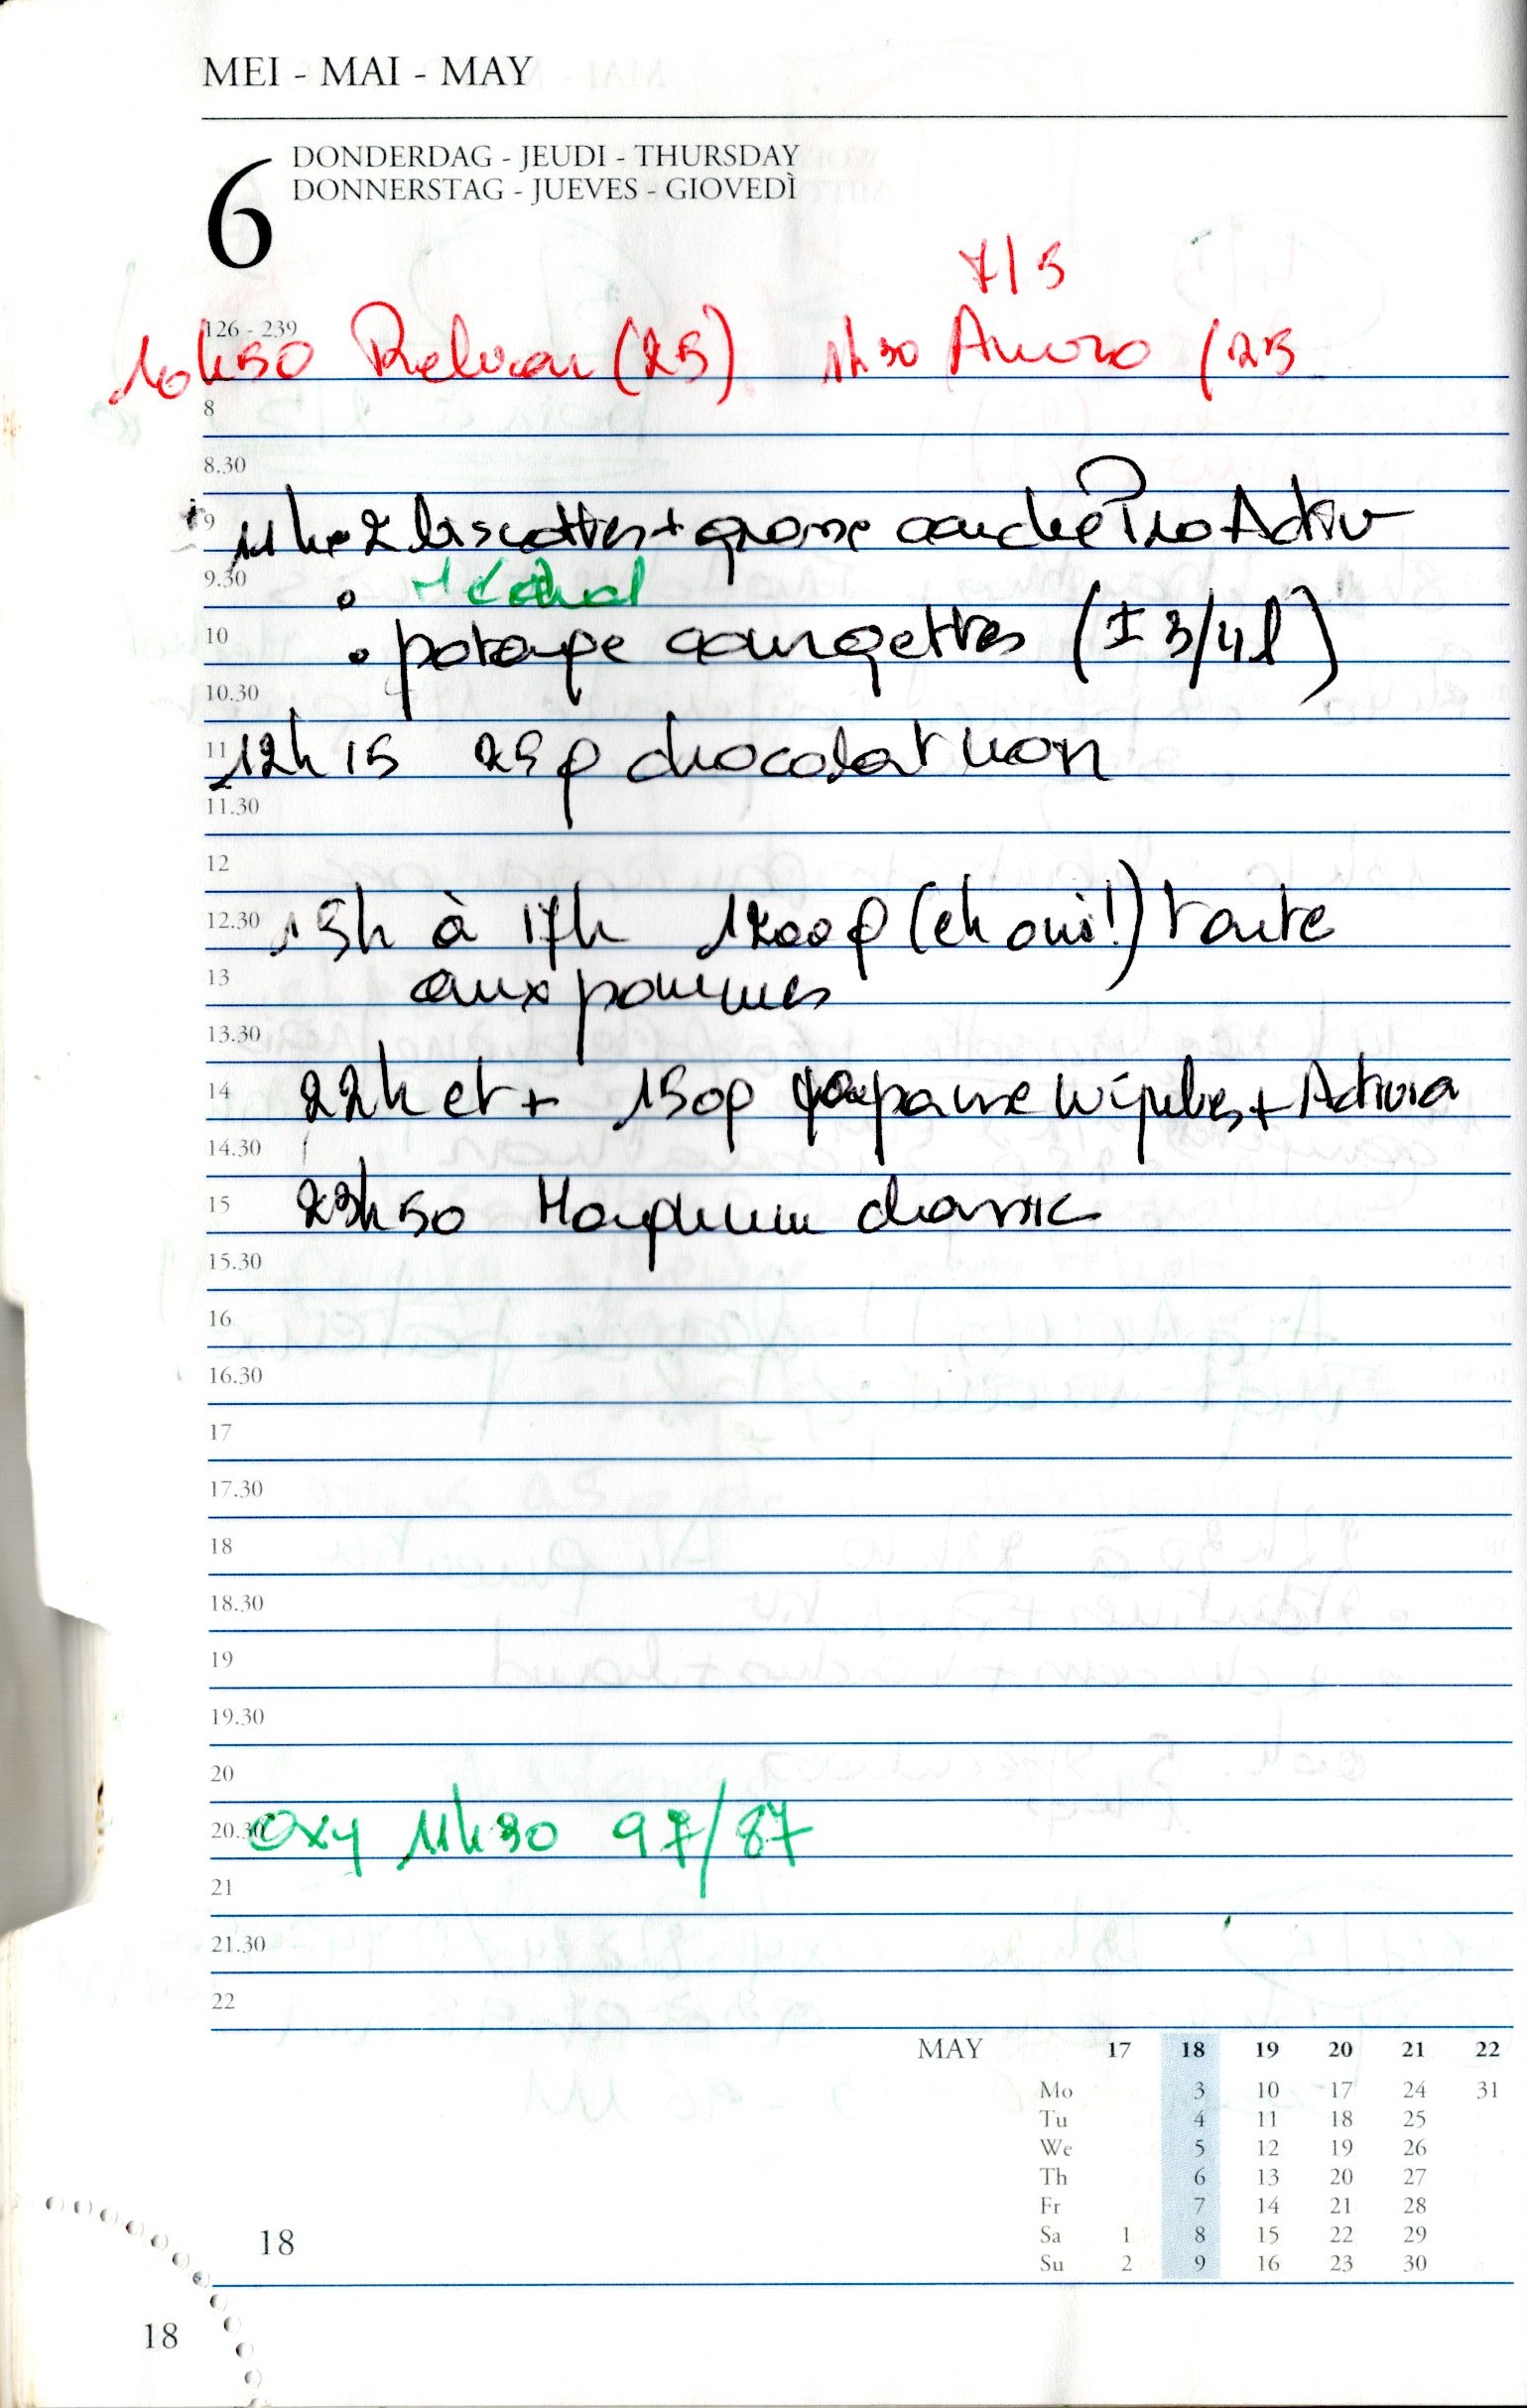 MEI - MAI - MAY
6
DONDERDAG - JEUDI - THURSDAY
DONNERSTAG - JUEVES - GIOVEDÌ
7/5
126 - 239
10h50 Relvar (25) 1h30 Anoro (25
8
8.30
9
11h 2 biscottes + grosse couche Pro Activ
9.30
10
potage courgettes (± 3/4 l)
10.30
11
12h15 25g chocolat noir
11.30
12
12.30
15h à 17h 1200g (eh oui!) tarte
13
aux pommes
13.30
14
22h et + 150g + Activia
14.30
15
23h50 Magnum classic
15.30
16
16.30
17
17.30
18
18.30
19
19.30
20
20.30
Oxy 11h30 97/87
21
21.30
22
MAY 17 18 19 20 21 22
Mo 3 10 17 24 31
Tu 4 11 18 25
We 5 12 19 26
Th 6 13 20 27
Fr 7 14 21 28
Sa 1 8 15 22 29
Su 2 9 16 23 30
18
18